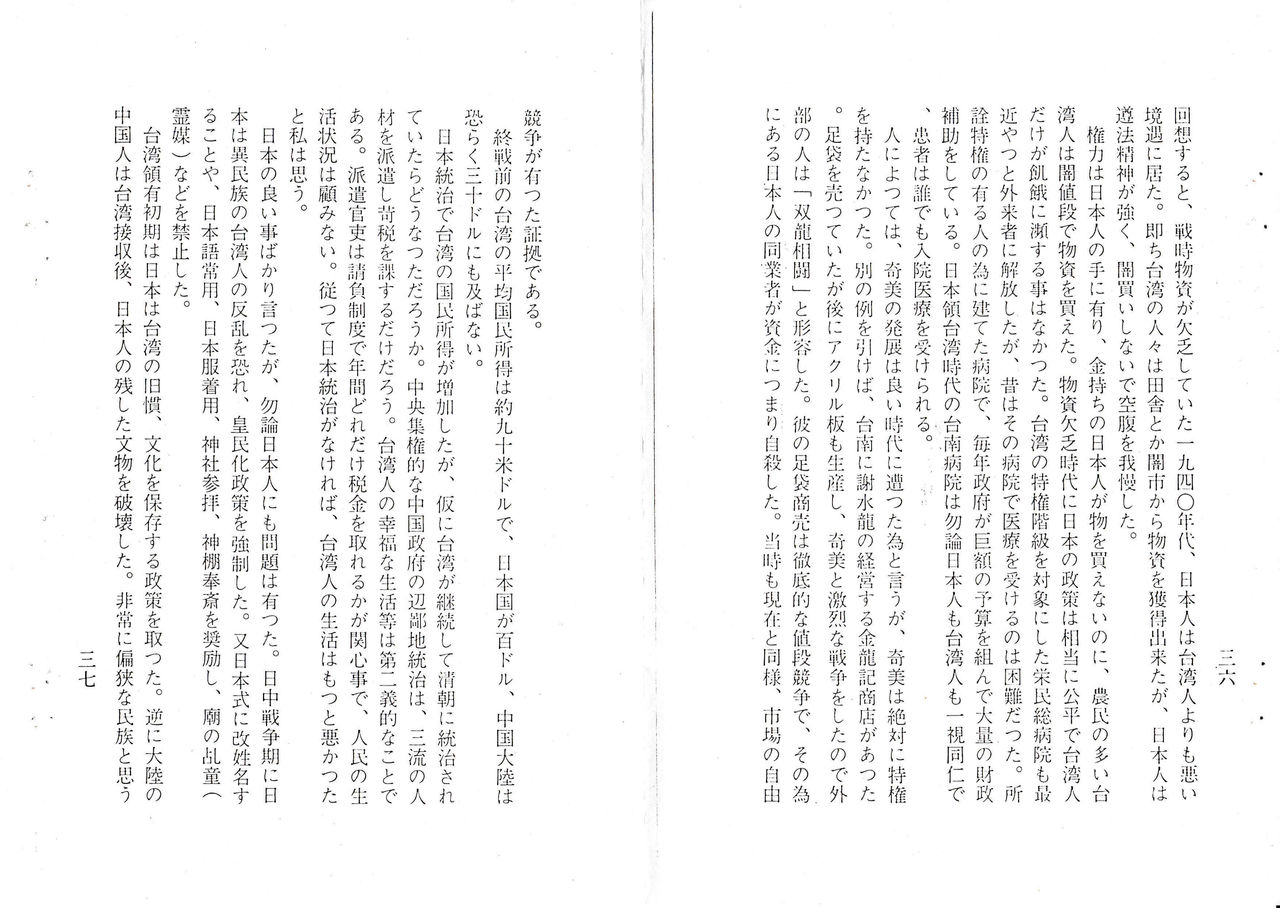 三六
回想すると、戦時物資が欠乏していた一九四〇年代、日本人は台湾人よりも悪い
境遇に居た。即ち台湾の人々は田舎とか闇市から物資を獲得出来たが、日本人は
遵法精神が強く、闇買いしないで空腹を我慢した。
権力は日本人の手に有り、金持ちの日本人が物を買えないのに、農民の多い台
湾人は闇値段で物資を買えた。物資欠乏時代に日本の政策は相当に公平で台湾人
だけが飢餓に瀕する事はなかつた。台湾の特権階級を対象にした栄民総病院も最
近やつと外来者に解放したが、昔はその病院で医療を受けるのは困難だつた。所
詮特権の有る人の為に建てた病院で、毎年政府が巨額の予算を組んで大量の財政
補助をしている。日本領台湾時代の台南病院は勿論日本人も台湾人も一視同仁で
、患者は誰でも入院医療を受けられる。
人によつては、奇美の発展は良い時代に遭つた為と言うが、奇美は絶対に特権
を持たなかつた。別の例を引けば、台南に謝水龍の経営する金龍記商店があつた
。足袋を売つていたが後にアクリル板も生産し、奇美と激烈な戦争をしたので外
部の人は「双龍相闘」と形容した。彼の足袋商売は徹底的な値段競争で、その為
にある日本人の同業者が資金につまり自殺した。当時も現在と同様、市場の自由
競争が有つた証拠である。
終戦前の台湾の平均国民所得は約九十米ドルで、日本国が百ドル、中国大陸は
恐らく三十ドルにも及ばない。
日本統治で台湾の国民所得が増加したが、仮に台湾が継続して清朝に統治され
ていたらどうなつただろうか。中央集権的な中国政府の辺鄙地統治は、三流の人
材を派遣し苛税を課するだけだろう。台湾人の幸福な生活等は第二義的なことで
ある。派遣官吏は請負制度で年間どれだけ税金を取れるかが関心事で、人民の生
活状況は顧みない。従つて日本統治がなければ、台湾人の生活はもつと悪かつた
と私は思う。
日本の良い事ばかり言つたが、勿論日本人にも問題は有つた。日中戦争期に日
本は異民族の台湾人の反乱を恐れ、皇民化政策を強制した。又日本式に改姓名す
ることや、日本語常用、日本服着用、神社参拝、神棚奉斎を奨励し、廟の乩童(
霊媒)などを禁止した。
台湾領有初期は日本は台湾の旧慣、文化を保存する政策を取つた。逆に大陸の
中国人は台湾接収後、日本人の残した文物を破壊した。非常に偏狭な民族と思う
三七